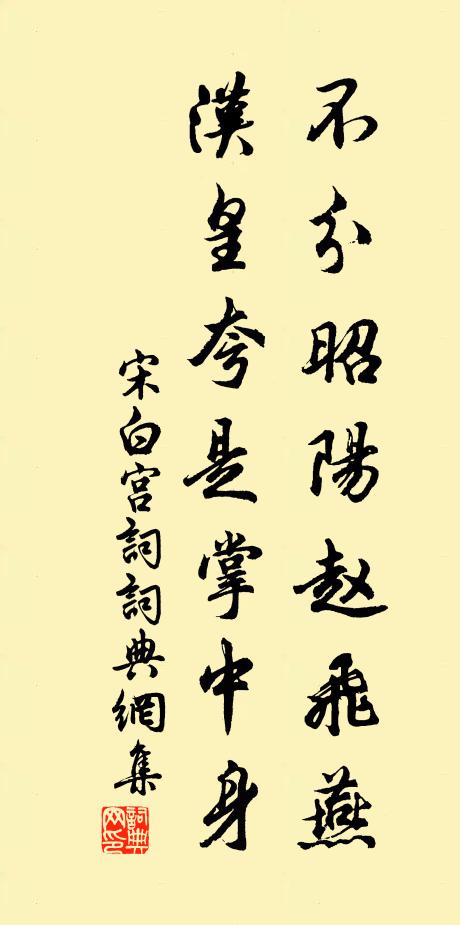 不分昭陽赵飛燕
漢皇夸是掌中身
宋白宫詞詞典網集
詞典网印